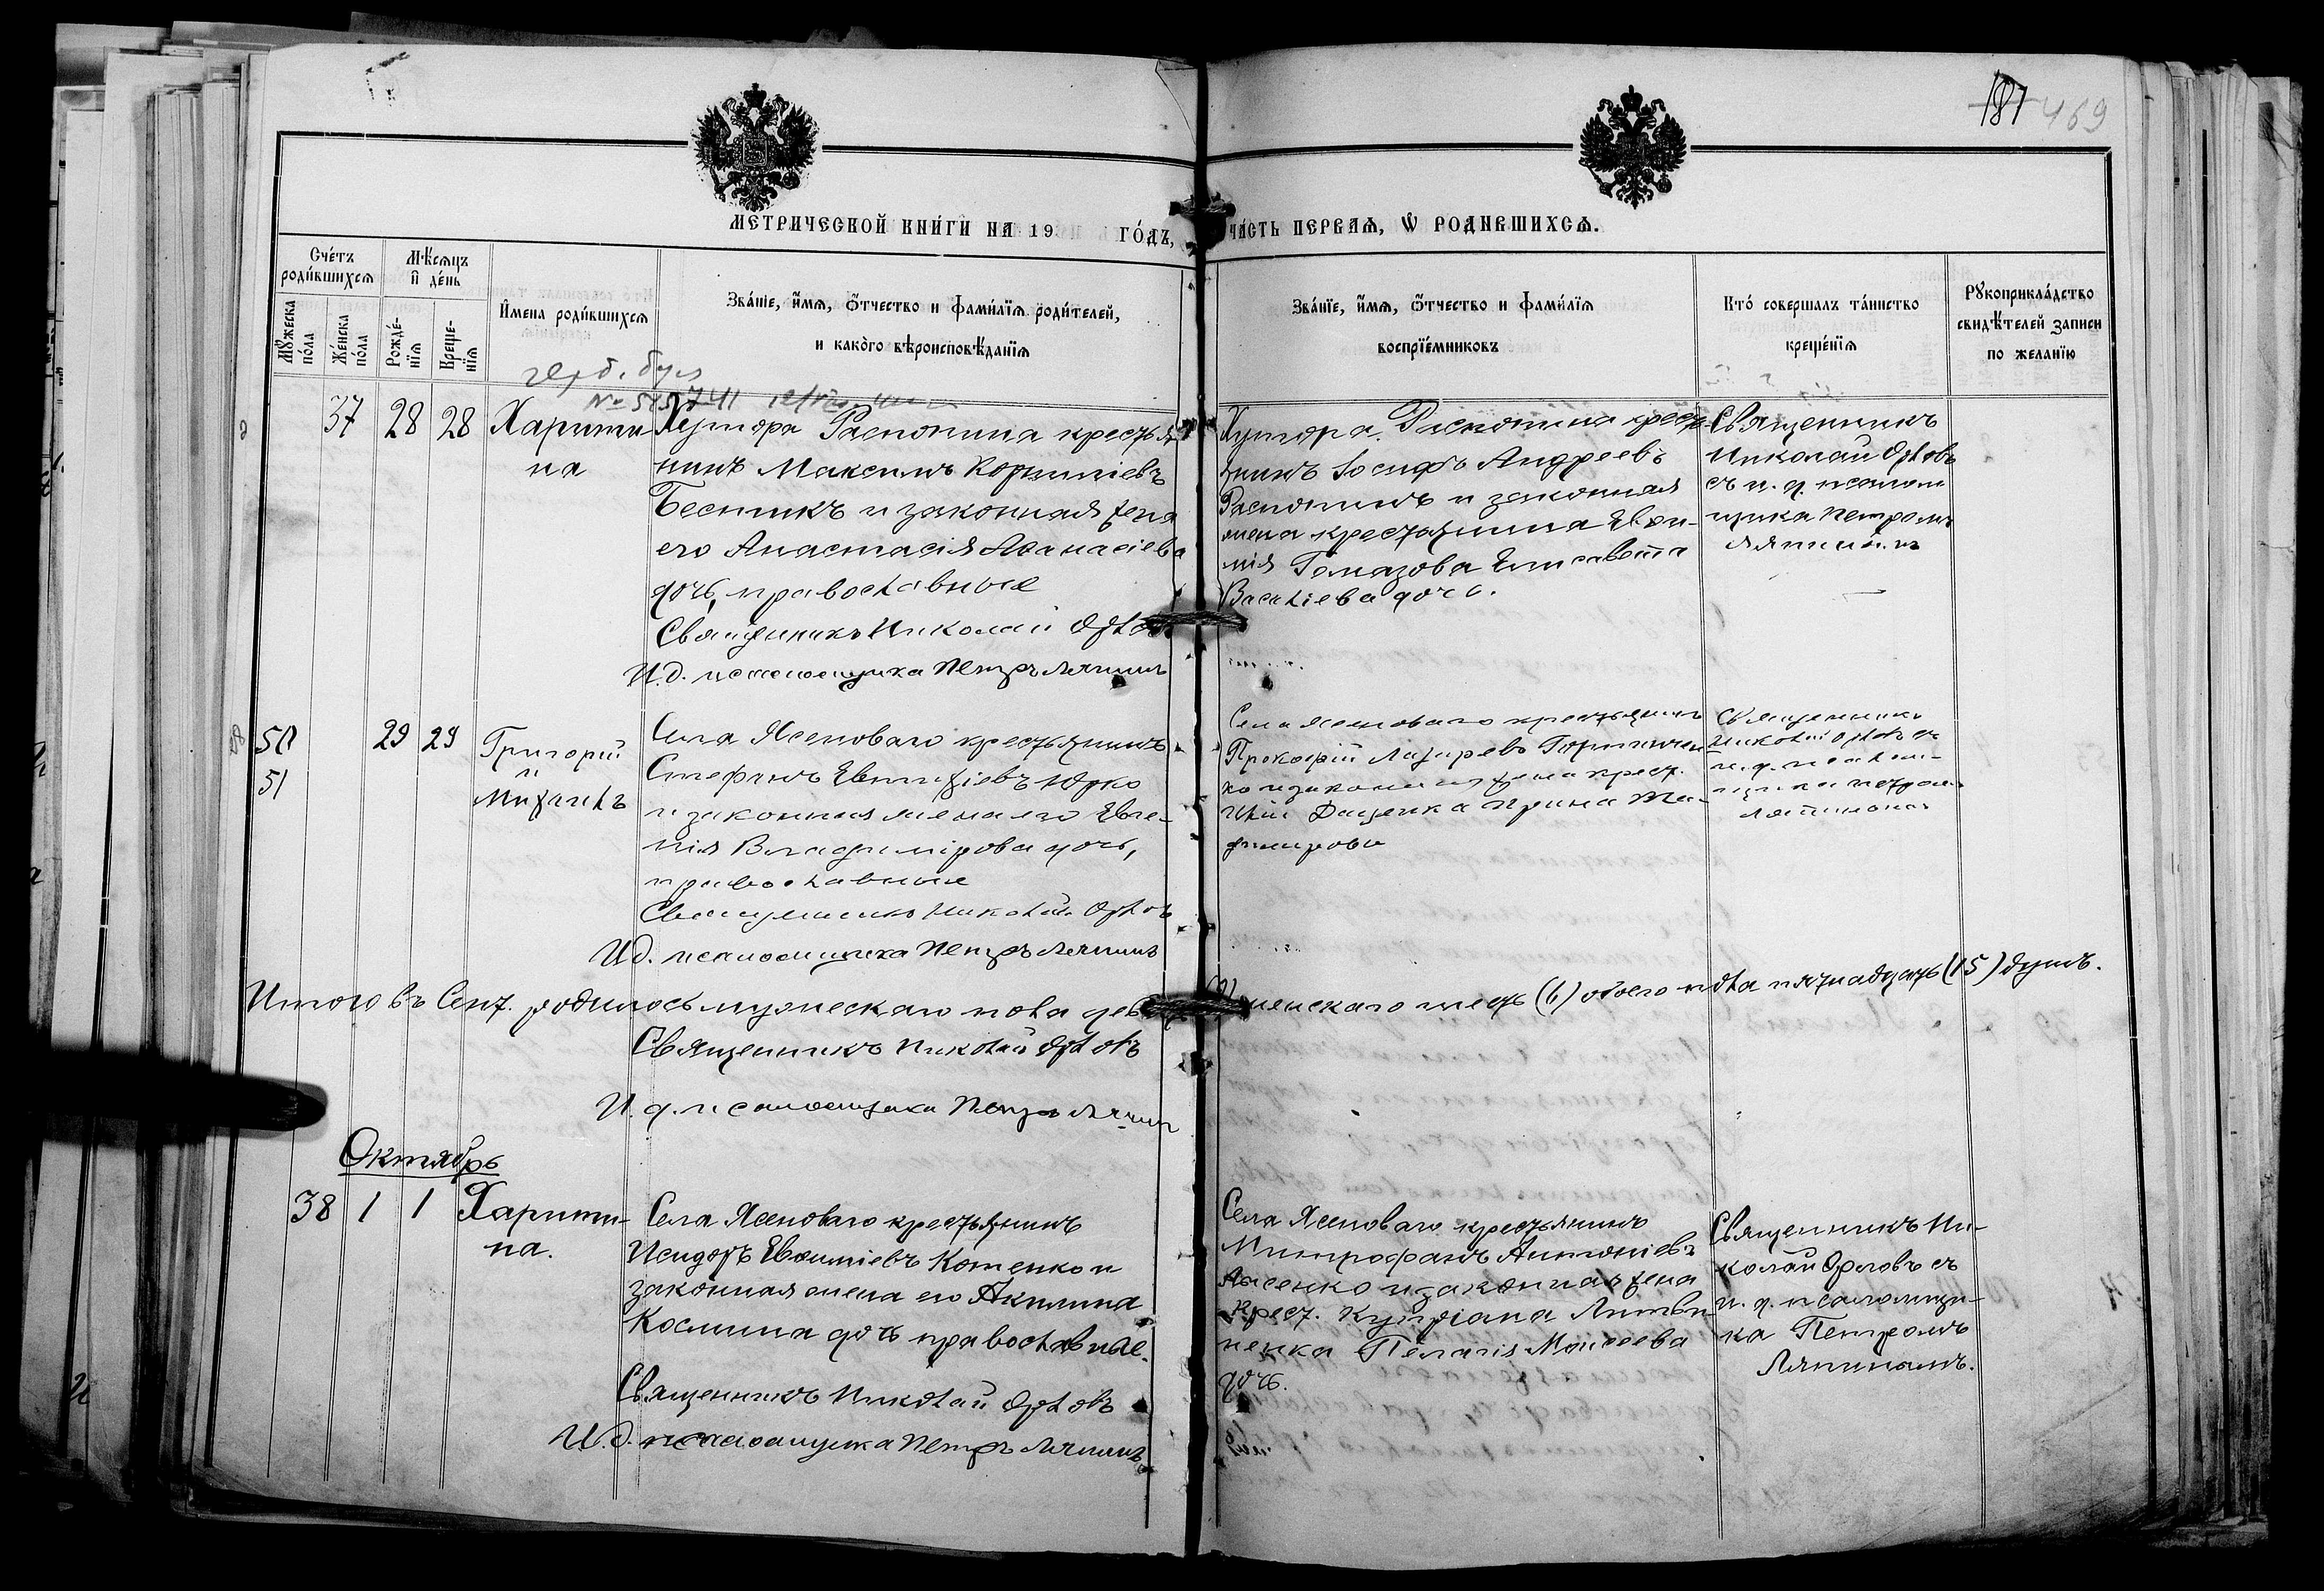 187 469
МЕТРИЧЕСКОЙ КНИ́ГИ НА 19 ГО́ДЪ,
ЧА́СТЬ ПЕРВАѦ, Ѡ РОДИВШИХСѦ.
Сче́тъ роди́вшихсѧ
Мѣ́сѧцъ и҆ де́нь
Мꙋ́жеска по́ла
Же́нска по́ла
Рожде́нїѧ
Креще́нїѧ
И҆мена роди́вшихсѧ
Зва́нїе, и҆́мѧ, ѻ҆́тчество и фами́лїѧ роди́телей,
и какого вѣроисповѣ́данїѧ
Зва́нїе, и҆́мѧ, ѻ҆́тчество и фами́лїѧ
воспрїе́мниковъ
Кто́ совершалъ та́инство
креще́нїѧ
Рꙋкоприкла́дство
свидѣ́телей записи
по желанїю
37 28 28
Харити
на
Хутора Распопина крестья
нинъ Максимъ Корниліевъ
Бестикъ и законная жена
его Анастасія Аѳанасіева
дочь, православные
Священникъ Николай Орловъ
И.д. псаломщика Петръ Ляпинъ
Хутора Распопина крест
янинъ Іосифъ Андреевъ
Распопинъ и законная
жена крестьянина Евѳи-
мія Гомазова Елисавета
Васильева дочь.
Священникъ
Николай Орловъ
съ и. д. псалом
щика Петромъ
Ляпинымъ
50 29 29
51
Григорій
и
Михаилъ
Села Ясеноваго крестьянинъ
Стефанъ Юрко
и законная жена его Евге-
нія Владимірова дочь,
православные
Священникъ Николай Орловъ
И.д. псаломщика Петръ Ляпинъ
Села Ясеноваго крестьянинъ
Прокофій Лазаревъ
и законная жена крест.
Даценка Ирина
Священникъ
Николай Орловъ съ
и. д. псалом-
щика Петромъ
Ляпинымъ
Итого въ Сент. родилось мужескаго пола девять женскаго шесть (6) обоего пола пятнадцать (15) душъ.
Священникъ Николай Орловъ
И. д. псаломщика Петръ Ляпинъ
Октябрь
38 1 1
Харити-
на.
Села Ясеноваго крестьянинъ
Исидоръ Евѳиміевъ Котенко и
законная жена его Акилина
Космина дочь православные.
Священникъ Николай Орловъ
И.д. псаломщика Петръ Ляпинъ
Села Ясеноваго крестьянинъ
Митрофанъ Антоніевъ
Лысенко и законная жена
крест. Кипріана Литви
ненка Пелагія Моисеева
дочь.
Священникъ Ни-
колай Орловъ съ
и. д. псаломщи-
ка Петромъ
Ляпинымъ.